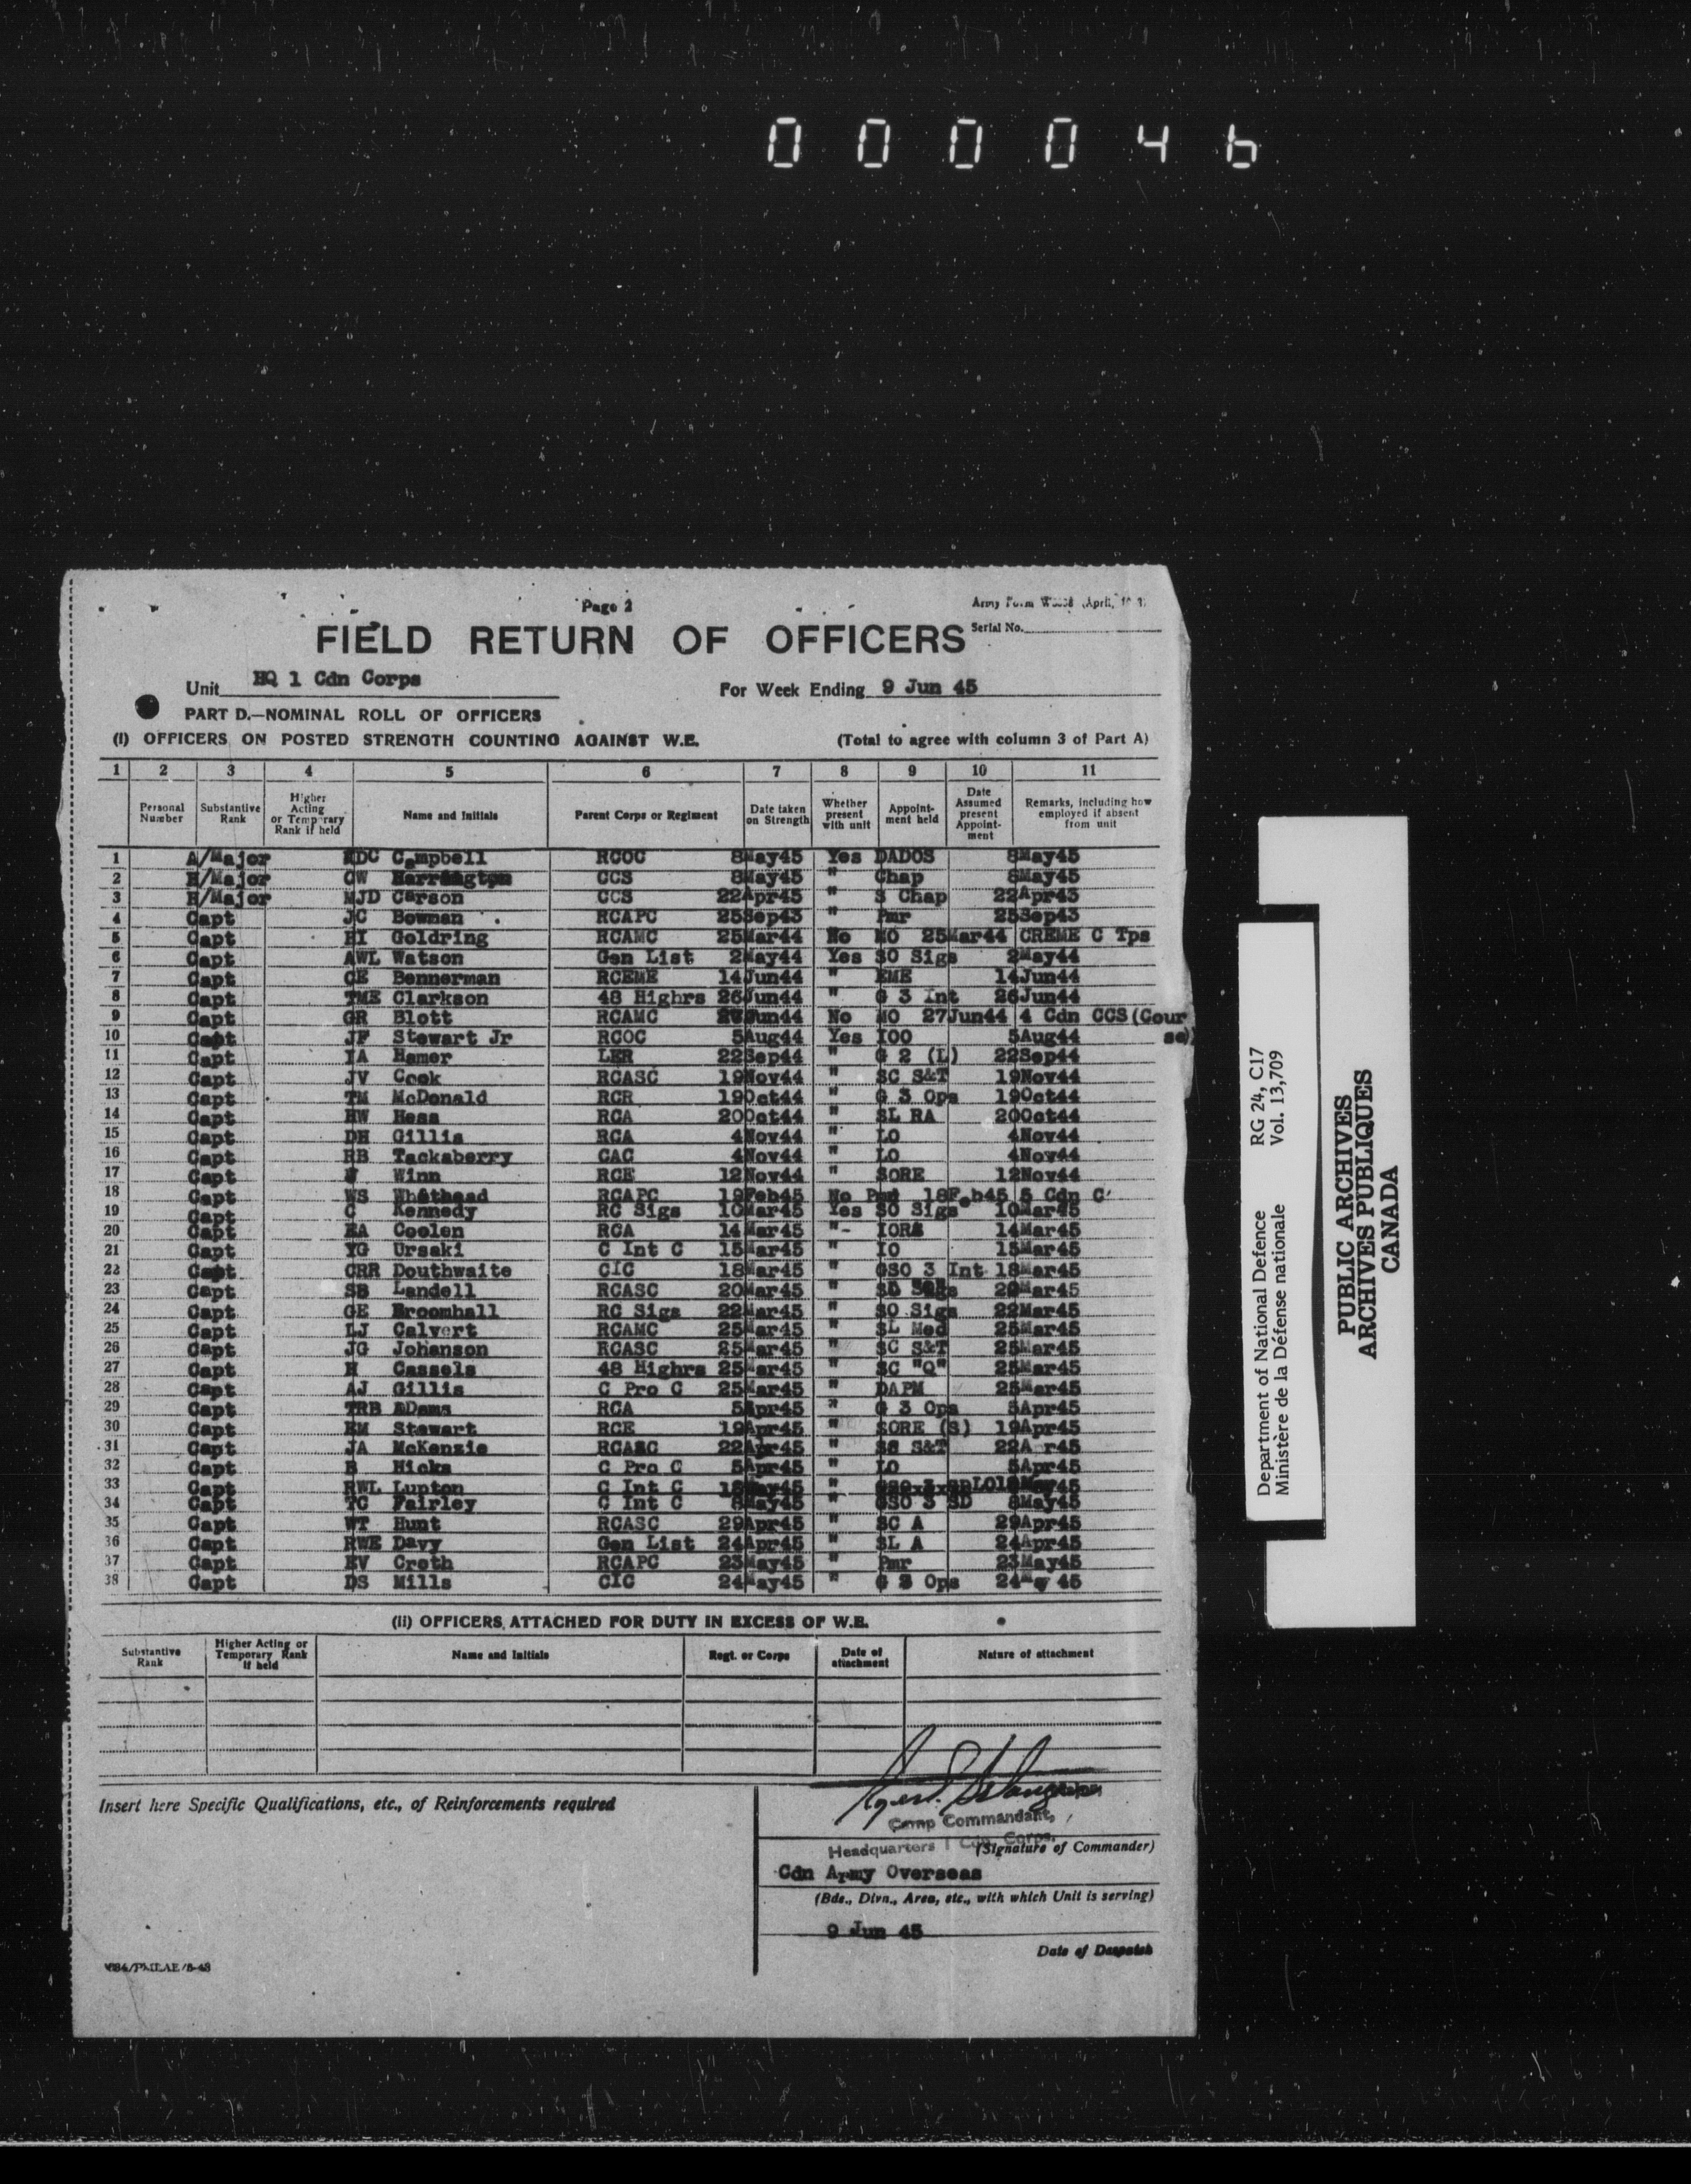 000046
Page 2
Army Form
FIELD RETURN OF OFFICERS
Serial No.
Unit HQ 1 Cdn Corps
For Week Ending 9 Jun 45
PART D.—NOMINAL ROLL OF OFFICERS
(I) OFFICERS ON POSTED STRENGTH COUNTING AGAINST W.E. (Total to agree with column 3 of Part A)
1 2 3 4 5 6 7 8 9 10 11
Personal Number Substantive Rank Higher Acting or Temporary Rank if held Name and Initials Parent Corps or Regiment Date taken on Strength Whether present with unit Appoint-ment held Date Assumed present Appoint-ment Remarks, including how employed if absent from unit
1 A/Major DC Campbell RCOC 8May45 Yes DADOS 8May45
2 H/Major CW Harrington CCS 8May45 " Chap 8May45
3 H/Major MJD Carson CCS 22Apr45 " S Chap 22Apr43
4 Capt JC Bowman RCAPC 25Sep43 " Pmr 25Sep43
5 Capt HI Goldring RCAMC 25Mar44 No MO 25Mar44 CREME C Tps
6 Capt AWL Watson Gen List 2May44 Yes SO Sigs 2May44
7 Capt CE Bennerman RCEME 14Jun44 " EME 14Jun44
8 Capt TME Clarkson 48 Highrs 26Jun44 " G 3 Int 26Jun44
9 Capt GR Blott RCAMC 27Jun44 No MO 27Jun44 4 Cdn CCS (Cour
10 Capt JF Stewart Jr RCOC 5Aug44 Yes IOO 5Aug44 se)
11 Capt IA Hamer LER 22Sep44 " G 2 (L) 22Sep44
12 Capt JV Cook RCASC 19Nov44 " SC S&T 19Nov44
13 Capt TM McDonald RCR 19Oct44 " G 3 Ops 19Oct44
14 Capt HW Hess RCA 20Oct44 " SL RA 20Oct44
15 Capt DH Gillis RCA 4Nov44 " LO 4Nov44
16 Capt RB Tackaberry CAC 4Nov44 " LO 4Nov44
17 Capt Winn RCE 12Nov44 " SORE 12Nov44
18 Capt WS Whethead RCAPC 19Feb45 No Pmr 18Feb45 5 Cdn C
19 Capt C Kennedy RC Sigs 10Mar45 Yes SO Sigs 10Mar45
20 Capt EA Coolen RCA 14Mar45 "- IORA 14Mar45
21 Capt YG Ursaki C Int C 15Mar45 " IO 15Mar45
22 Capt CRR Douthwaite CIC 18Mar45 " GSO 3 Int 18Mar45
23 Capt SB Landell RCASC 20Mar45 " 20Mar45
24 Capt GE Broomhall RC Sigs 22Mar45 " SO Sigs 22Mar45
25 Capt LJ Calvert RCAMC 25Mar45 " SL Med 25Mar45
26 Capt JG Johanson RCASC 25Mar45 " SC S&T 25Mar45
27 Capt H Cassels 48 Highrs 25Mar45 " SC "Q" 25Mar45
28 Capt AJ Gillis C Pro C 25Mar45 " DAPM 25Mar45
29 Capt TRB ADams RCA 5Apr45 " G 3 Ops 5Apr45
30 Capt EM Stewart RCE 19Apr45 " SORE (S) 19Apr45
31 Capt JA McKenzie RCASC 22Apr45 " SC S&T 22A r45
32 Capt B Hicks C Pro C 5Apr45 " LO 5Apr45
33 Capt RWL Lupton C Int C May45 " LO May45
34 Capt TC Fairley C Int C 8May45 " GSO 3 SD 8May45
35 Capt WT Hunt RCASC 29Apr45 " SC A 29Apr45
36 Capt RWE Davy Gen List 24Apr45 " SL A 24Apr45
37 Capt EV Croth RCAPC 23May45 " Pmr 23May45
38 Capt DS Mills CIC 24May45 " G 3 Ops 24May 45
(II) OFFICERS ATTACHED FOR DUTY IN EXCESS OF W.E.
Substantive Rank Higher Acting or Temporary Rank if held Name and Initials Regt. or Corps Date of attachment Nature of attachment
Insert here Specific Qualifications, etc., of Reinforcements required
Camp Commandant,
Headquarters 1 Cdn. Corps.
(Signature of Commander)
Cdn Army Overseas
(Bde., Divn., Area, etc., with which Unit is serving)
9 Jun 45
Date of Despatch
Department of National Defence RG 24, C17
Ministère de la Défense nationale Vol. 13,709
PUBLIC ARCHIVES
ARCHIVES PUBLIQUES
CANADA